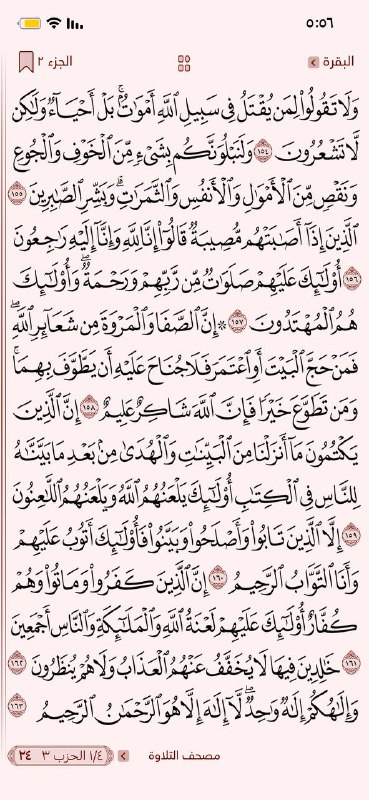 ٥:٥٦
البقرة
الجزء ٢
وَلَا تَقُولُوا۟ لِمَن يُقْتَلُ فِى سَبِيلِ ٱللَّهِ أَمْوَٰتٌۢ ۚ بَلْ أَحْيَآءٌ وَلَٰكِن
لَّا تَشْعُرُونَ ١٥٤ وَلَنَبْلُوَنَّكُم بِشَىْءٍ مِّنَ ٱلْخَوْفِ وَٱلْجُوعِ
وَنَقْصٍ مِّنَ ٱلْأَمْوَٰلِ وَٱلْأَنفُسِ وَٱلثَّمَرَٰتِ ۗ وَبَشِّرِ ٱلصَّٰبِرِينَ ١٥٥
ٱلَّذِينَ إِذَآ أَصَٰبَتْهُم مُّصِيبَةٌ قَالُوٓا۟ إِنَّا لِلَّهِ وَإِنَّآ إِلَيْهِ رَٰجِعُونَ
١٥٦ أُو۟لَٰٓئِكَ عَلَيْهِمْ صَلَوَٰتٌ مِّن رَّبِّهِمْ وَرَحْمَةٌ ۖ وَأُو۟لَٰٓئِكَ
هُمُ ٱلْمُهْتَدُونَ ١٥٧ ۞ إِنَّ ٱلصَّفَا وَٱلْمَرْوَةَ مِن شَعَآئِرِ ٱللَّهِ ۖ
فَمَنْ حَجَّ ٱلْبَيْتَ أَوِ ٱعْتَمَرَ فَلَا جُنَاحَ عَلَيْهِ أَن يَطَّوَّفَ بِهِمَا ۚ
وَمَن تَطَوَّعَ خَيْرًا فَإِنَّ ٱللَّهَ شَاكِرٌ عَلِيمٌ ١٥٨ إِنَّ ٱلَّذِينَ
يَكْتُمُونَ مَآ أَنزَلْنَا مِنَ ٱلْبَيِّنَٰتِ وَٱلْهُدَىٰ مِنۢ بَعْدِ مَا بَيَّنَّٰهُ
لِلنَّاسِ فِى ٱلْكِتَٰبِ ۙ أُو۟لَٰٓئِكَ يَلْعَنُهُمُ ٱللَّهُ وَيَلْعَنُهُمُ ٱللَّٰعِنُونَ
١٥٩ إِلَّا ٱلَّذِينَ تَابُوا۟ وَأَصْلَحُوا۟ وَبَيَّنُوا۟ فَأُو۟لَٰٓئِكَ أَتُوبُ عَلَيْهِمْ ۚ
وَأَنَا ٱلتَّوَّابُ ٱلرَّحِيمُ ١٦٠ إِنَّ ٱلَّذِينَ كَفَرُوا۟ وَمَاتُوا۟ وَهُمْ
كُفَّارٌ أُو۟لَٰٓئِكَ عَلَيْهِمْ لَعْنَةُ ٱللَّهِ وَٱلْمَلَٰٓئِكَةِ وَٱلنَّاسِ أَجْمَعِينَ
١٦١ خَٰلِدِينَ فِيهَا ۖ لَا يُخَفَّفُ عَنْهُمُ ٱلْعَذَابُ وَلَا هُمْ يُنظَرُونَ ١٦٢
وَإِلَٰهُكُمْ إِلَٰهٌ وَٰحِدٌ ۖ لَّآ إِلَٰهَ إِلَّا هُوَ ٱلرَّحْمَٰنُ ٱلرَّحِيمُ ١٦٣
مصحف التلاوة
١/٤ الحزب ٣
٢٤